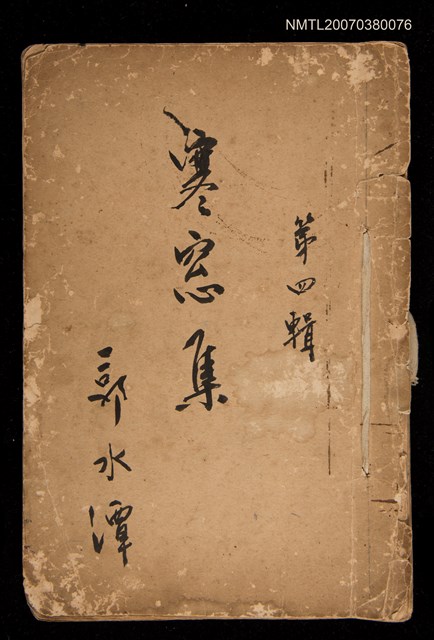 NMTL20070380076
第四輯
寒窓集
郭水潭